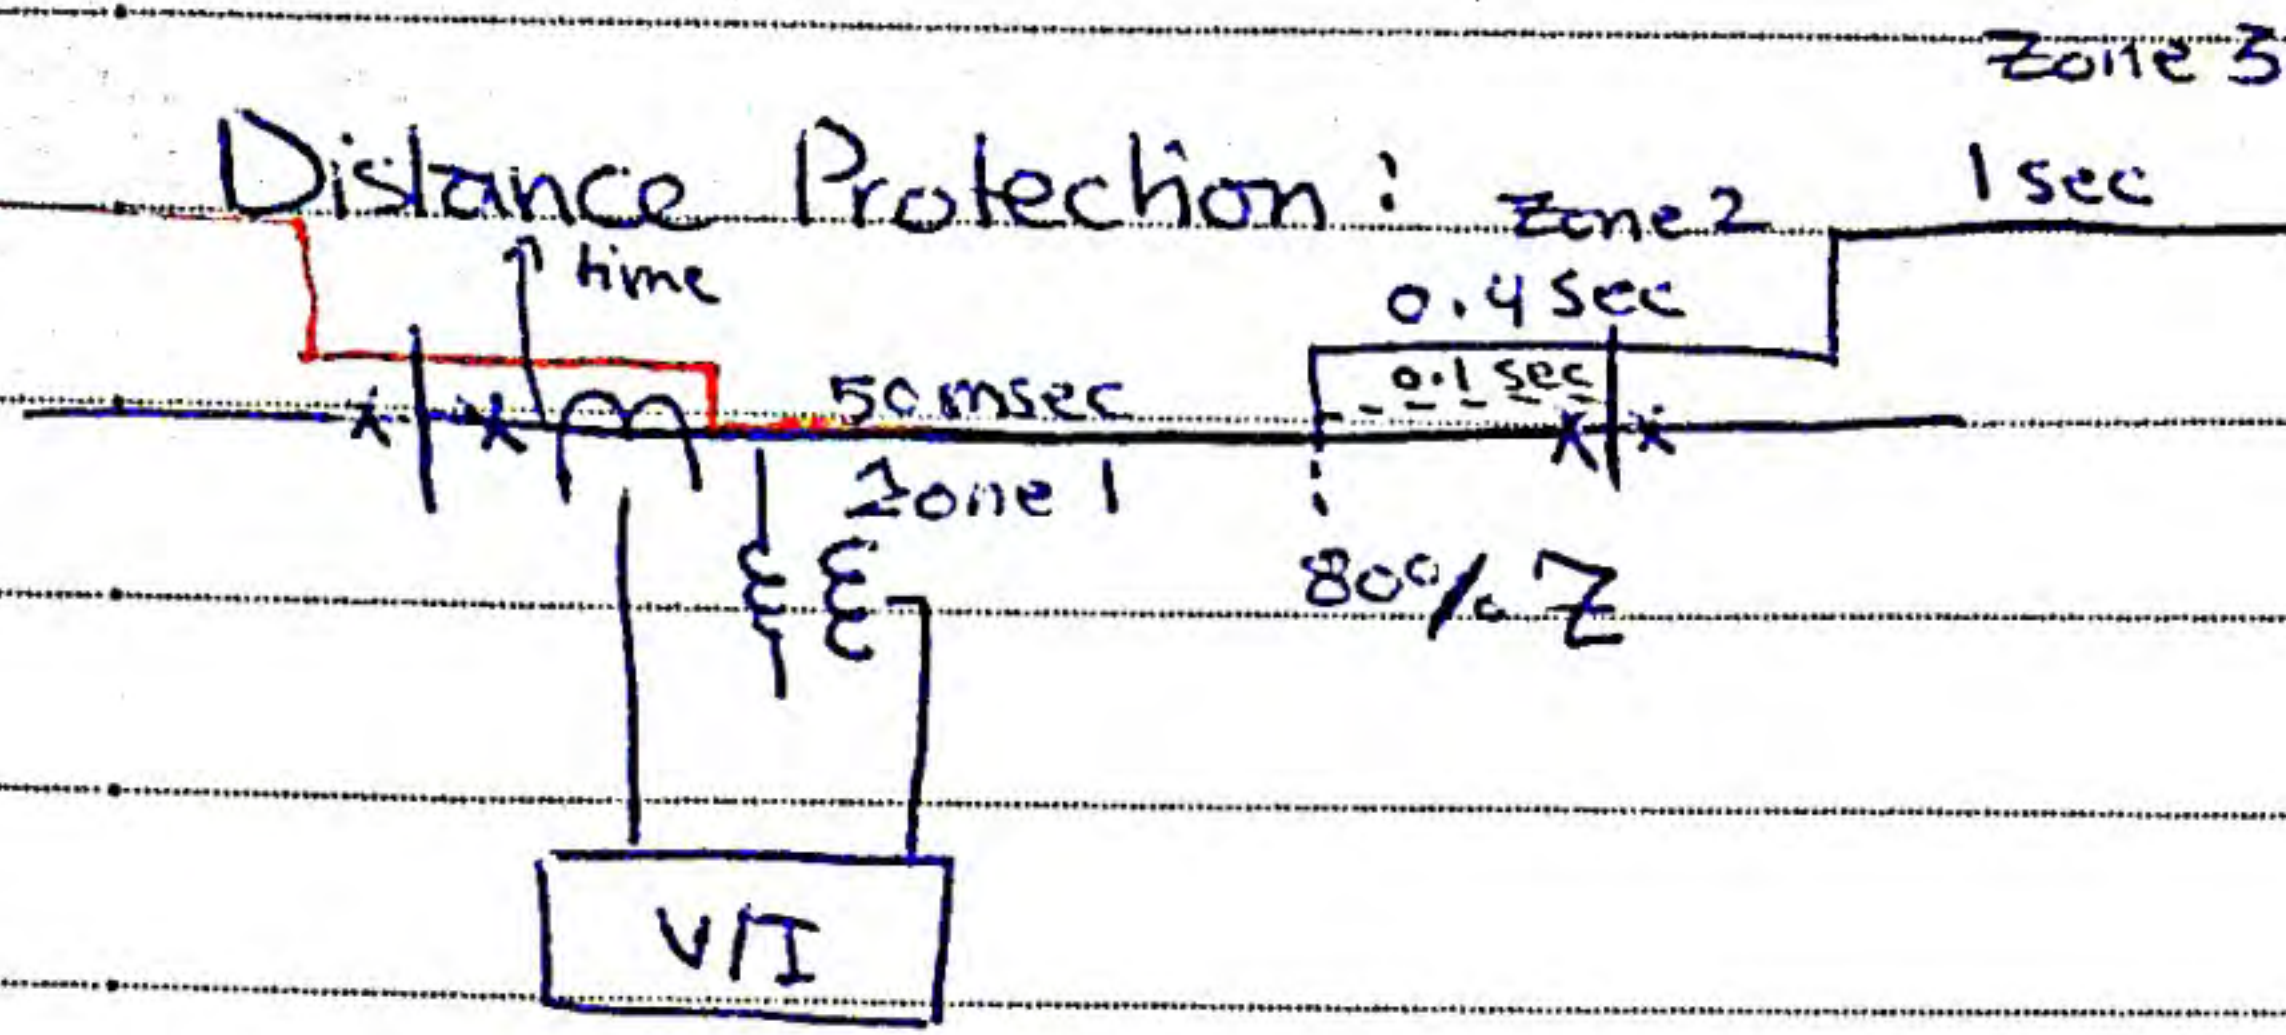 Zone 3
Distance Protection :
Zone 2
1 sec
time
0.4 sec
50 msec
0.1 sec
Zone 1
80% Z
V/I